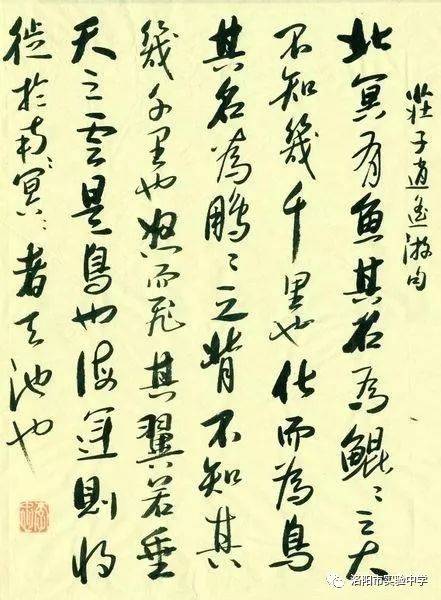 莊子逍遙游句
北冥有魚其名為鯤〻之大
不知幾千里也化而為鳥
其名為鵬〻之背不知其
幾千里也怒而飛其翼若垂
天之雲是鳥也海運則將
徙於南〻冥〻者天池也
洛阳市实验中学